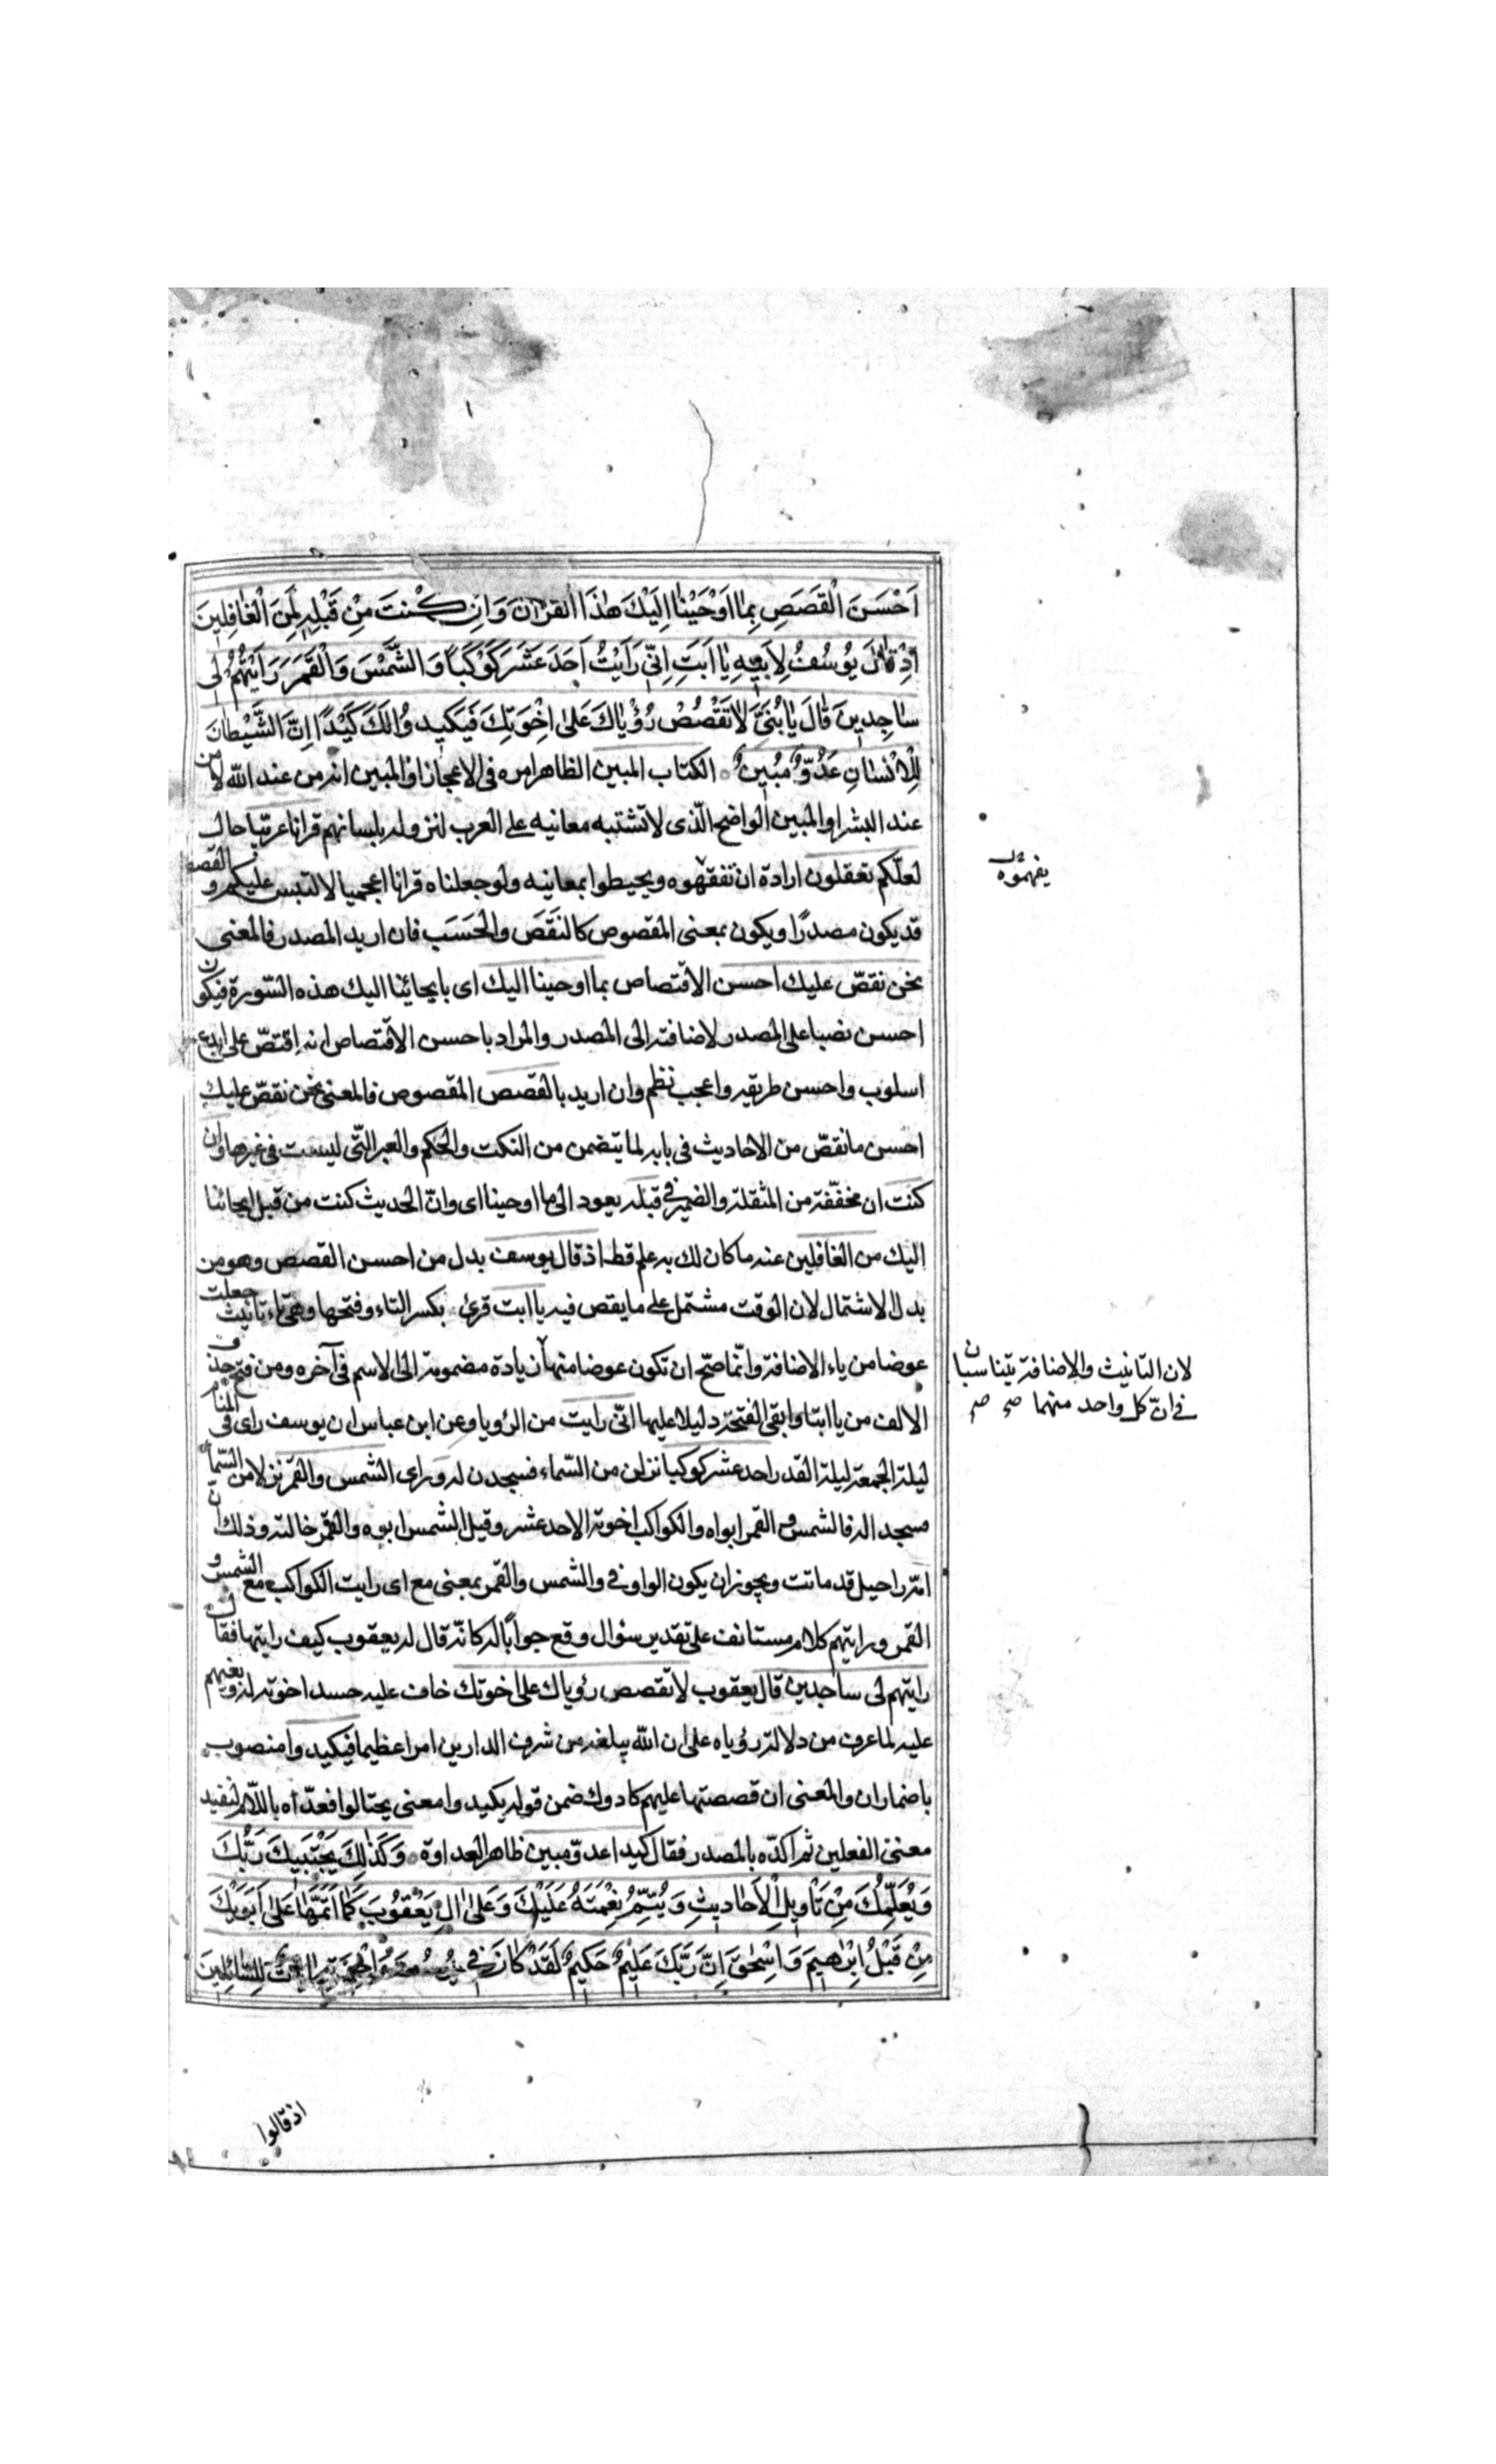 اَحْسَنَ الْقَصَصِ بِمٰا اَوْحَيْنٰا اِلَيْكَ هٰذَا الْقُرْاٰنَ وَاِنْ كُنْتَ مِنْ قَبْلِهِ لَمِنَ الْغٰافِلِينَ
اِذْ قٰالَ يُوسُفُ لِاَبِيهِ يٰا اَبَتِ اِنّى رَاَيْتُ اَحَدَ عَشَرَ كَوْكَباً وَالشَّمْسَ وَالْقَمَرَ رَاَيْتُهُمْ لى
سٰاجِدِينَ قٰالَ يٰا بُنَىَّ لٰا تَقْصُصْ رُؤْيٰاكَ عَلىٰ اِخْوَتِكَ فَيَكيدُوا لَكَ كَيْدًا اِنَّ الشَّيْطٰانَ
لِلْاِنْسٰانِ عَدُوٌّ مُبينٌ الكتاب المبين الظاهر امره فى الاعجاز او المبين انه من عند الله لا من
عند البشر او المبين الواضح الّذى لا تشتبه معانيه على العرب لنزوله بلسانهم قرانا عربيّا حال
لعلّكم تعقلون ارادة ان تفقهوه ويحيطوا بمعانيه ولو جعلناه قرانا اعجميا لالتبس عليكم و القصص
يفهموه
قد يكون مصدرًا ويكون بمعنى المقصوص كالنَقَصَ والحَسَبَ فان اريد المصدر فالمعنى
نحن نقصّ عليك احسن الاقتصاص بما اوحينا اليك اى بايحائنا اليك هذه السّورة فيكون
احسن نصبا على المصدر لاضافته الى المصدر والمراد باحسن الاقتصاص انه اقتصّ على ابدع
اسلوب واحسن طريقه واعجب نظم وان اريد بالقصص المقصوص فالمعنى نحن نقصّ عليك
احسن ما نقصّ من الاحاديث فى بابه لما يتضمن من النكت والحكم والعبر الّتى ليست فى غيرها وان
كنت ان مخفّفة من المثقلة والضمير فى قبله يعود الى ما اوحينا اى وانّ الحديث كنت من قبل ايحائنا
اليك من الغافلين عنه ما كان لك به علم قط اذ قال يوسف بدل من احسن القصص وهو من
بدل الاشتمال لان الوقت مشتمل على ما يقص فيه يا ابت قرئ بكسر التاء وفتحها وهى تاء تانيث جعلت
عوضا من ياء الاضافة وانّما صحّ ان تكون عوضا منها زيادة مضمومة الى الاسم فى آخره ومن فتح حذف
لان التانيث والاضافة يتناسبان
فى انّ كل واحد منهما صح صح
الالف من يا ابتا وابقى الفتحة دليلا عليها انّى رايت من الرؤيا وعن ابن عباس ان يوسف راى فى المنام
ليلة الجمعة ليلة القدر احد عشر كوكبا نزلن من السّماء فسجدن له وراى الشمس والقمر نزلا من السّماء
فسجدا له فالشمس والقمر ابواه والكواكب اخوته الاحد عشر وقيل الشمس ابوه والقمر خالته وذلك ان
امّه راحيل قد ماتت ويجوز ان يكون الواو فى والشمس والقمر بمعنى مع اى رايت الكواكب مع الشمس و
القمر ورايتهم كلام مستانف على تقدير سؤال وقع جوابًا له كانّه قال له يعقوب كيف رايتها فقال
رايتهم لى ساجدين قال يعقوب لا تقصص رؤياك على اخوتك خاف عليه حسد اخوته له وبغيهم
عليه لما عرف من دلالة رؤياه على ان الله يبلغه من شرف الدارين امرا عظيما فيكيدوا منصوب
باضمار ان والمعنى ان قصصتها عليهم كادوك ضمن قوله يكيدوا معنى يحتالوا فعدّاه باللام لتفيد
معنى الفعلين ثم اكدّه بالمصدر فقال كيدا عدوّ مبين ظاهر العداوة وَكَذٰلِكَ يَجْتَبيكَ رَبُّكَ
وَيُعَلِّمُكَ مِنْ تَاْويلِ الْاَحٰاديثِ وَيُتِمُّ نِعْمَتَهُ عَلَيْكَ وَعَلىٰ الِ يَعْقُوبَ كَمٰا اَتَمَّهٰا عَلىٰ اَبَوَيْكَ
مِنْ قَبْلُ اِبْرٰهيمَ وَاِسْحٰقَ اِنَّ رَبَّكَ عَليمٌ حَكيمٌ لَقَدْ كٰانَ فى يُوسُفَ وَاِخْوَتِهِ اٰيٰاتٌ لِلسّٰائِلينَ
اذ قالوا